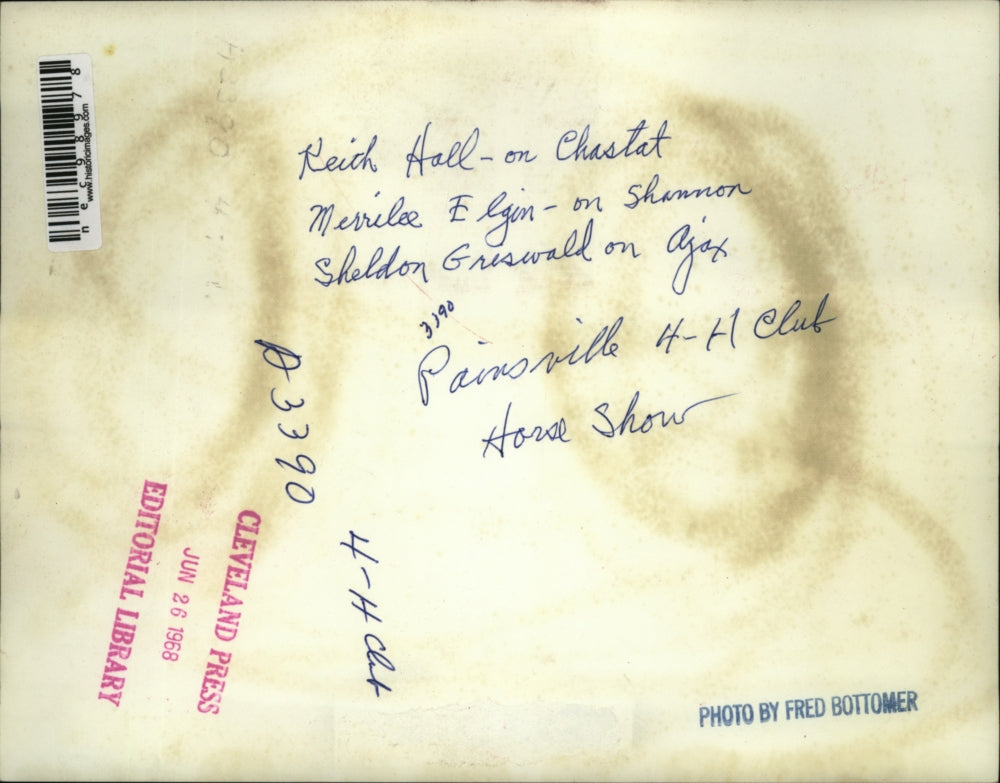 Keith Hall - on Chastat
Merrilee Elgin - on Shannon
Sheldon Greswald on Ajax
3390
Painsville 4-H Club
Horse Show
A-3390
4-H Club
CLEVELAND PRESS
JUN 26 1968
EDITORIAL LIBRARY
PHOTO BY FRED BOTTOMER
nec98978
www.historicimages.com